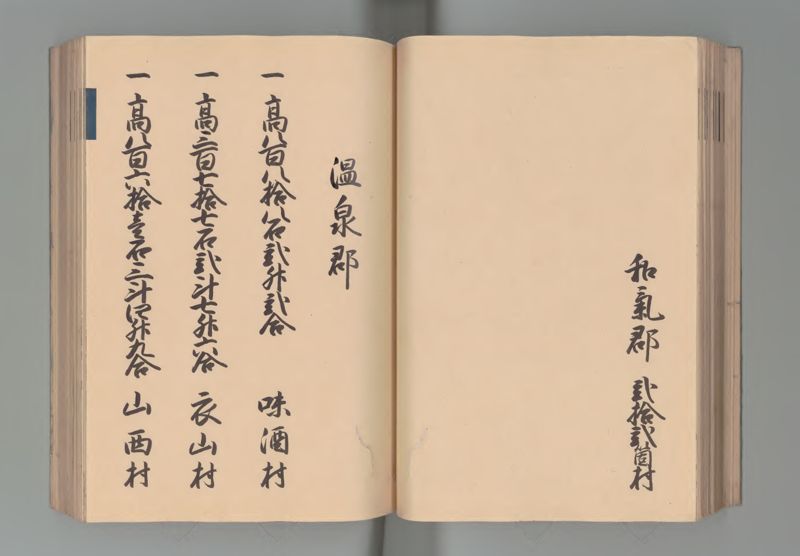 和氣郡 弐拾弐箇村
温泉郡
一 高八百八拾八石弐升弐合 味酒村
一 高三百七拾七石弐斗七升六合 衣山村
一 高八百六拾壱石三斗四升九合 山西村